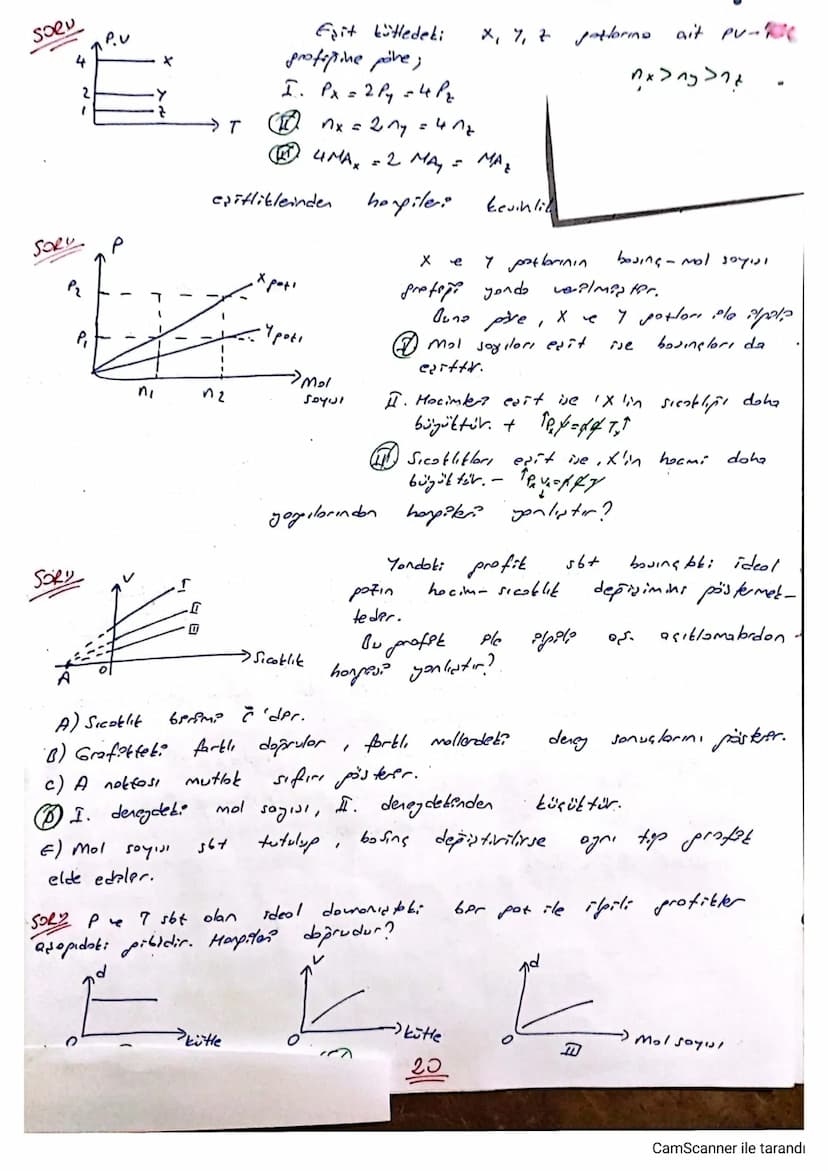 SORU
P.V
4
X
2
Y
1
Z
T
Eşit kütledeki X, Y, Z gazlarına ait PV-
grafiğine göre;
nx > ny > nz
I. Px = 2Py = 4Pz
II nx = 2ny = 4nz
III 4MAx = 2 MAy = MAz
eşitliklerinden hangileri kesinlik
SORU
P
P2
X gazı
P1
Y gazı
n1
n2
Mol
sayısı
X ve Y gazlarının basınç-mol sayısı
grafiği yanda verilmiştir.
Buna göre, X ve Y gazları ile ilgili;
I Mol sayıları eşit ise basınçları da
eşittir.
II. Hacimleri eşit ise X'in sıcaklığı daha
büyüktür. +
III Sıcaklıkları eşit ise, X'in hacmi daha
büyüktür. -
yargılarından hangileri yanlıştır?
SORU
V
I
II
III
A
0
Sıcaklık
Yandaki grafik sbt basınçtaki ideal
gazın hacim-sıcaklık değişimini göstermek-
tedir.
Bu grafik ile ilgili aş. açıklamalardan
hangisi yanlıştır?
A) Sıcaklık birimi °C 'dir.
B) Grafikteki farklı doğrular, farklı mollerdeki deney sonuçlarını gösterir.
C) A noktası mutlak sıfırı gösterir.
D) I. deneydeki mol sayısı, II. deneydekinden küçüktür.
E) Mol sayısı sbt tutulup, basınç değiştirilirse aynı tip grafik
elde edilir.
SORU P ve T sbt olan ideal davranıştaki bir gaz ile ilgili grafikler
aşağıdaki gibidir. Hangileri doğrudur?
d
0
kütle
V
0
kütle
d
0
Mol sayısı
III
20
CamScanner ile tarandı